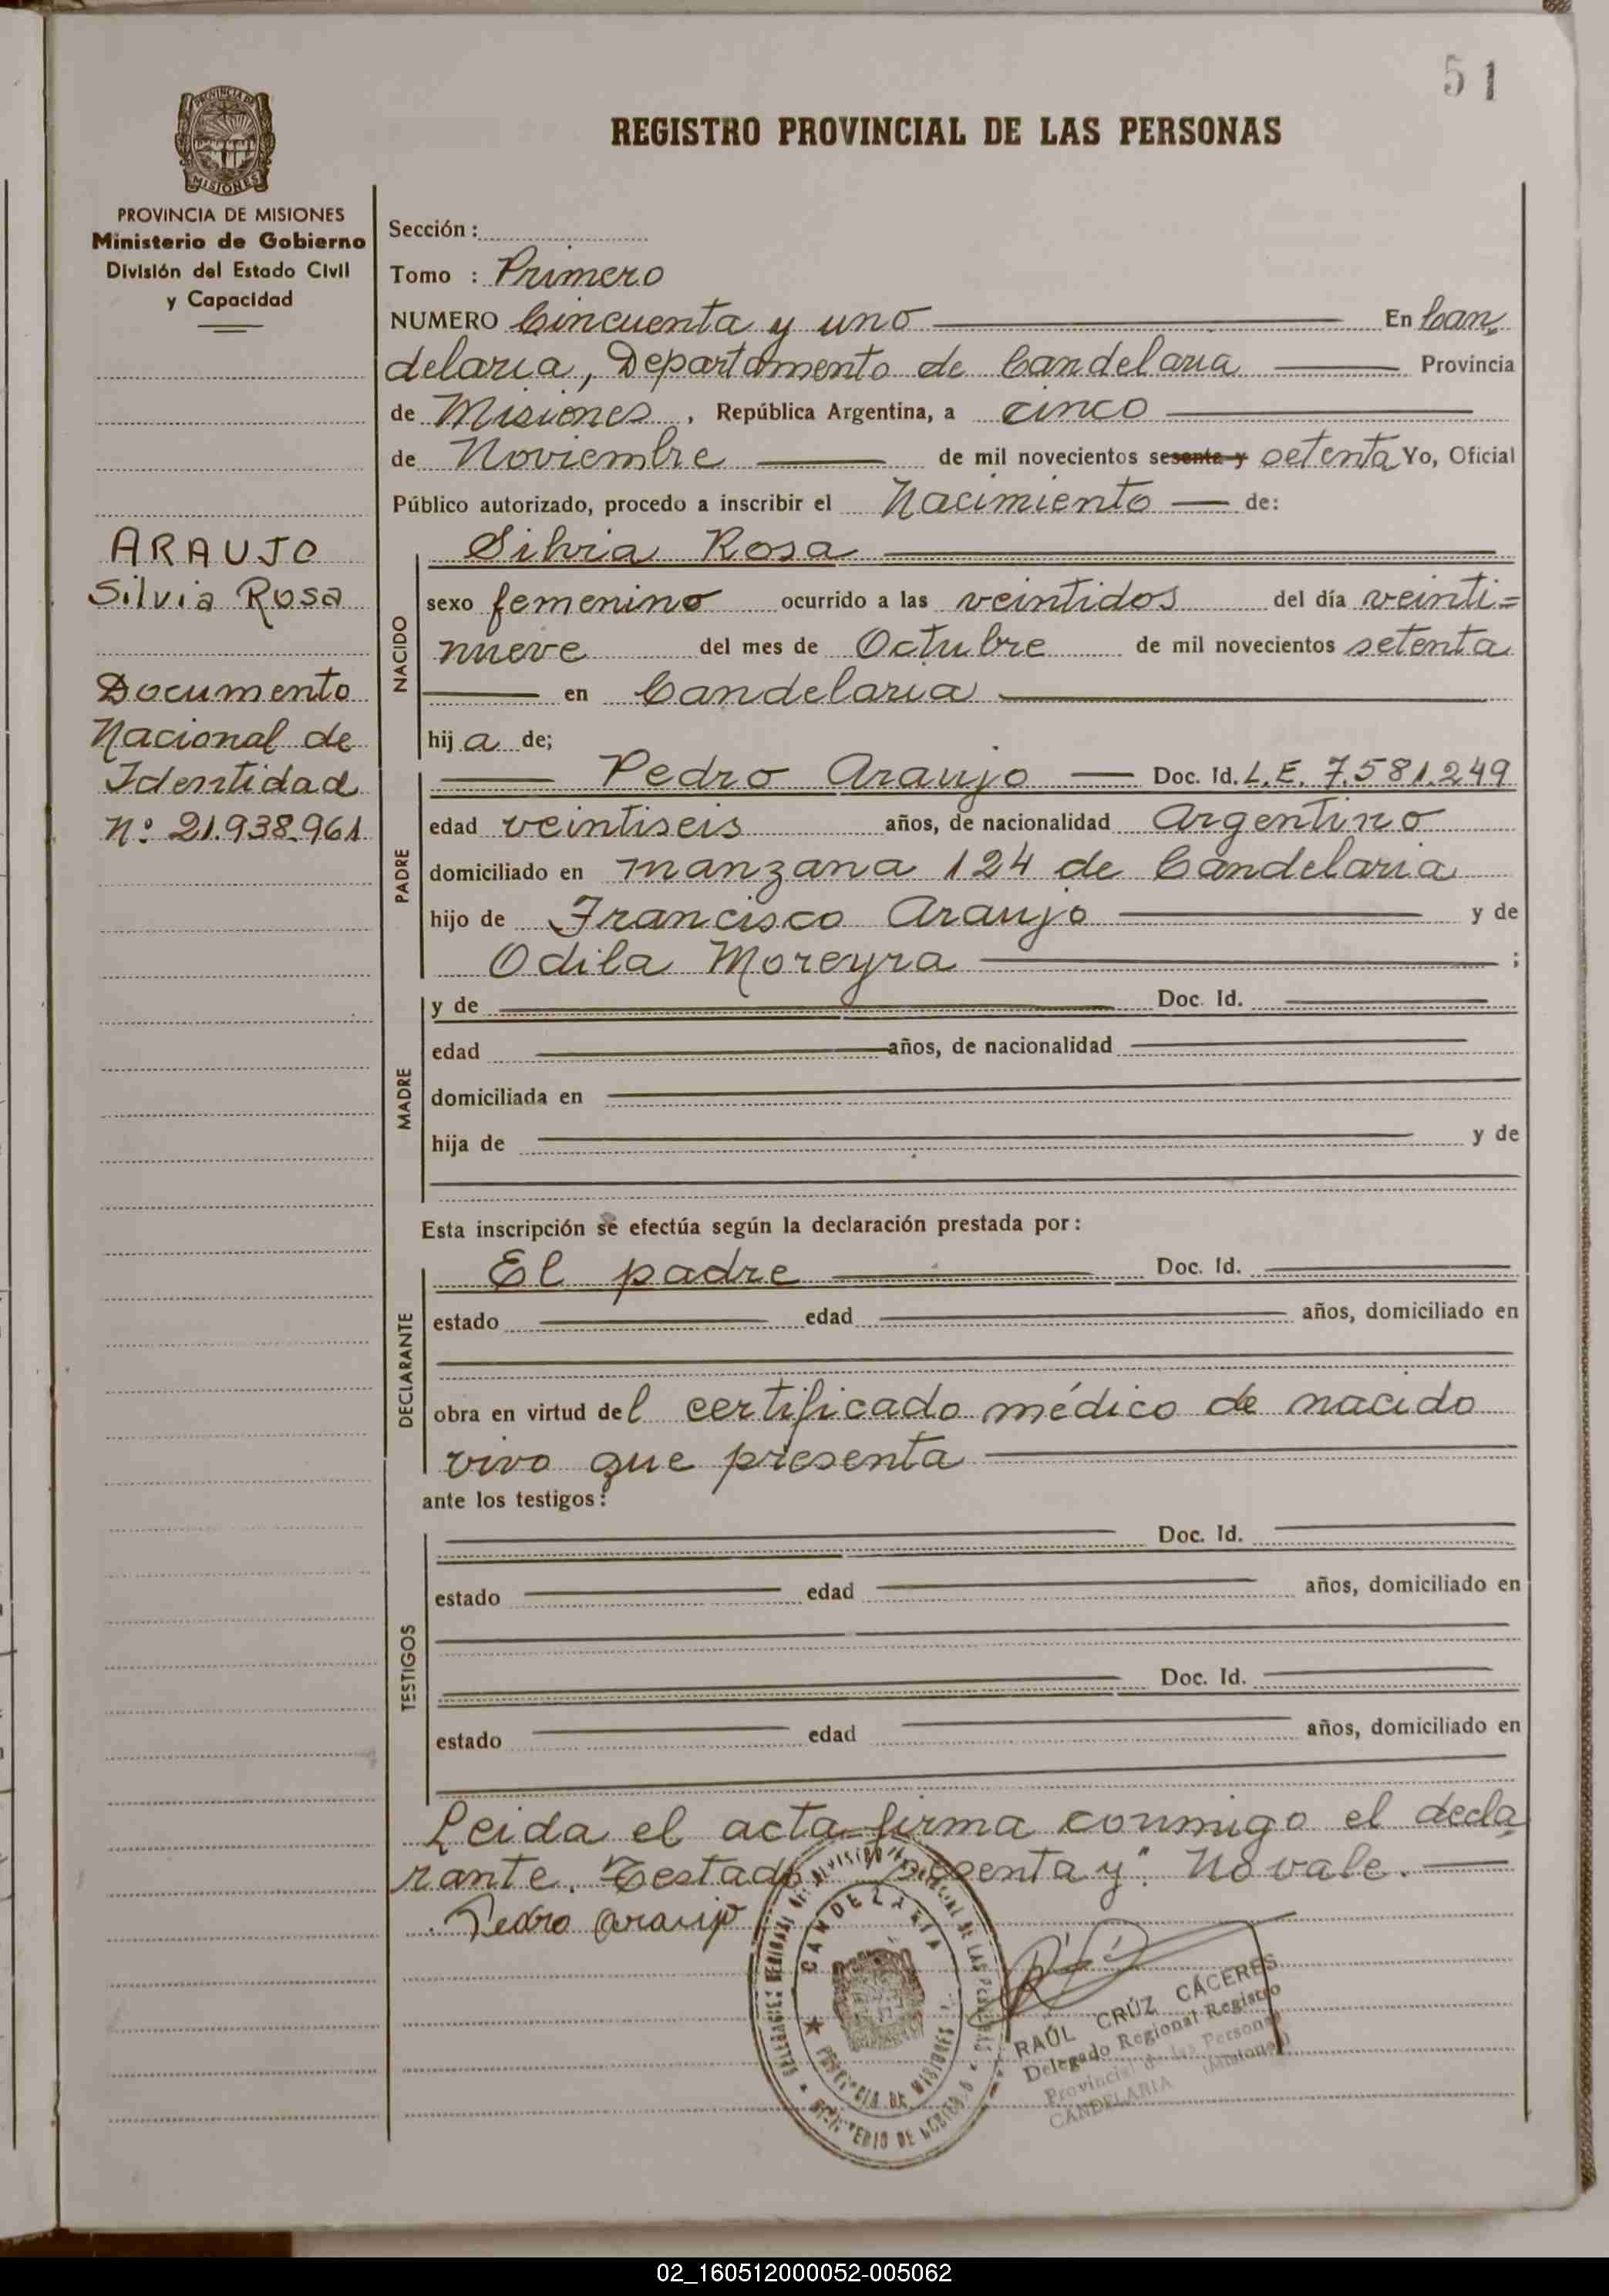 51
PROVINCIA DE
MISIONES
REGISTRO PROVINCIAL DE LAS PERSONAS
PROVINCIA DE MISIONES
Ministerio de Gobierno
División del Estado Civil
y Capacidad
ARAUJO
Silvia Rosa
Documento
Nacional de
Identidad
Nº 21.938.961
Sección :
Tomo : Primero
NUMERO Cincuenta y uno En Can
delaria, Departamento de Candelaria Provincia
de Misiones , República Argentina, a cinco
de Noviembre de mil novecientos sesenta y setenta Yo, Oficial
Público autorizado, procedo a inscribir el Nacimiento de:
Silvia Rosa
NACIDO
sexo femenino ocurrido a las veintidos del día veinti=
nueve del mes de Octubre de mil novecientos setenta
en Candelaria
hija de;
PADRE
Pedro Araujo Doc. Id. L.E. 7.581.249
edad veintiseis años, de nacionalidad Argentino
domiciliado en manzana 124 de Candelaria
hijo de Francisco Araujo y de
Odila Moreyra ;
MADRE
y de Doc. Id.
edad años, de nacionalidad
domiciliada en
hija de y de
Esta inscripción se efectúa según la declaración prestada por :
DECLARANTE
El padre Doc. Id.
estado edad años, domiciliado en
obra en virtud del certificado médico de nacido
vivo que presenta
ante los testigos :
TESTIGOS
Doc. Id.
estado edad años, domiciliado en
Doc. Id.
estado edad años, domiciliado en
Leida el acta firma conmigo el decla
rante. Testado "sesenta y". No vale.
Pedro Araujo
CANDELARIA
PROVINCIA DE MISIONES
MINISTERIO DE GOBIERNO
RAÚL CRÚZ CÁCERES
Delegado Regional Registro
Provincial de las Personas
CANDELARIA (Misiones)
02_160512000052-005062